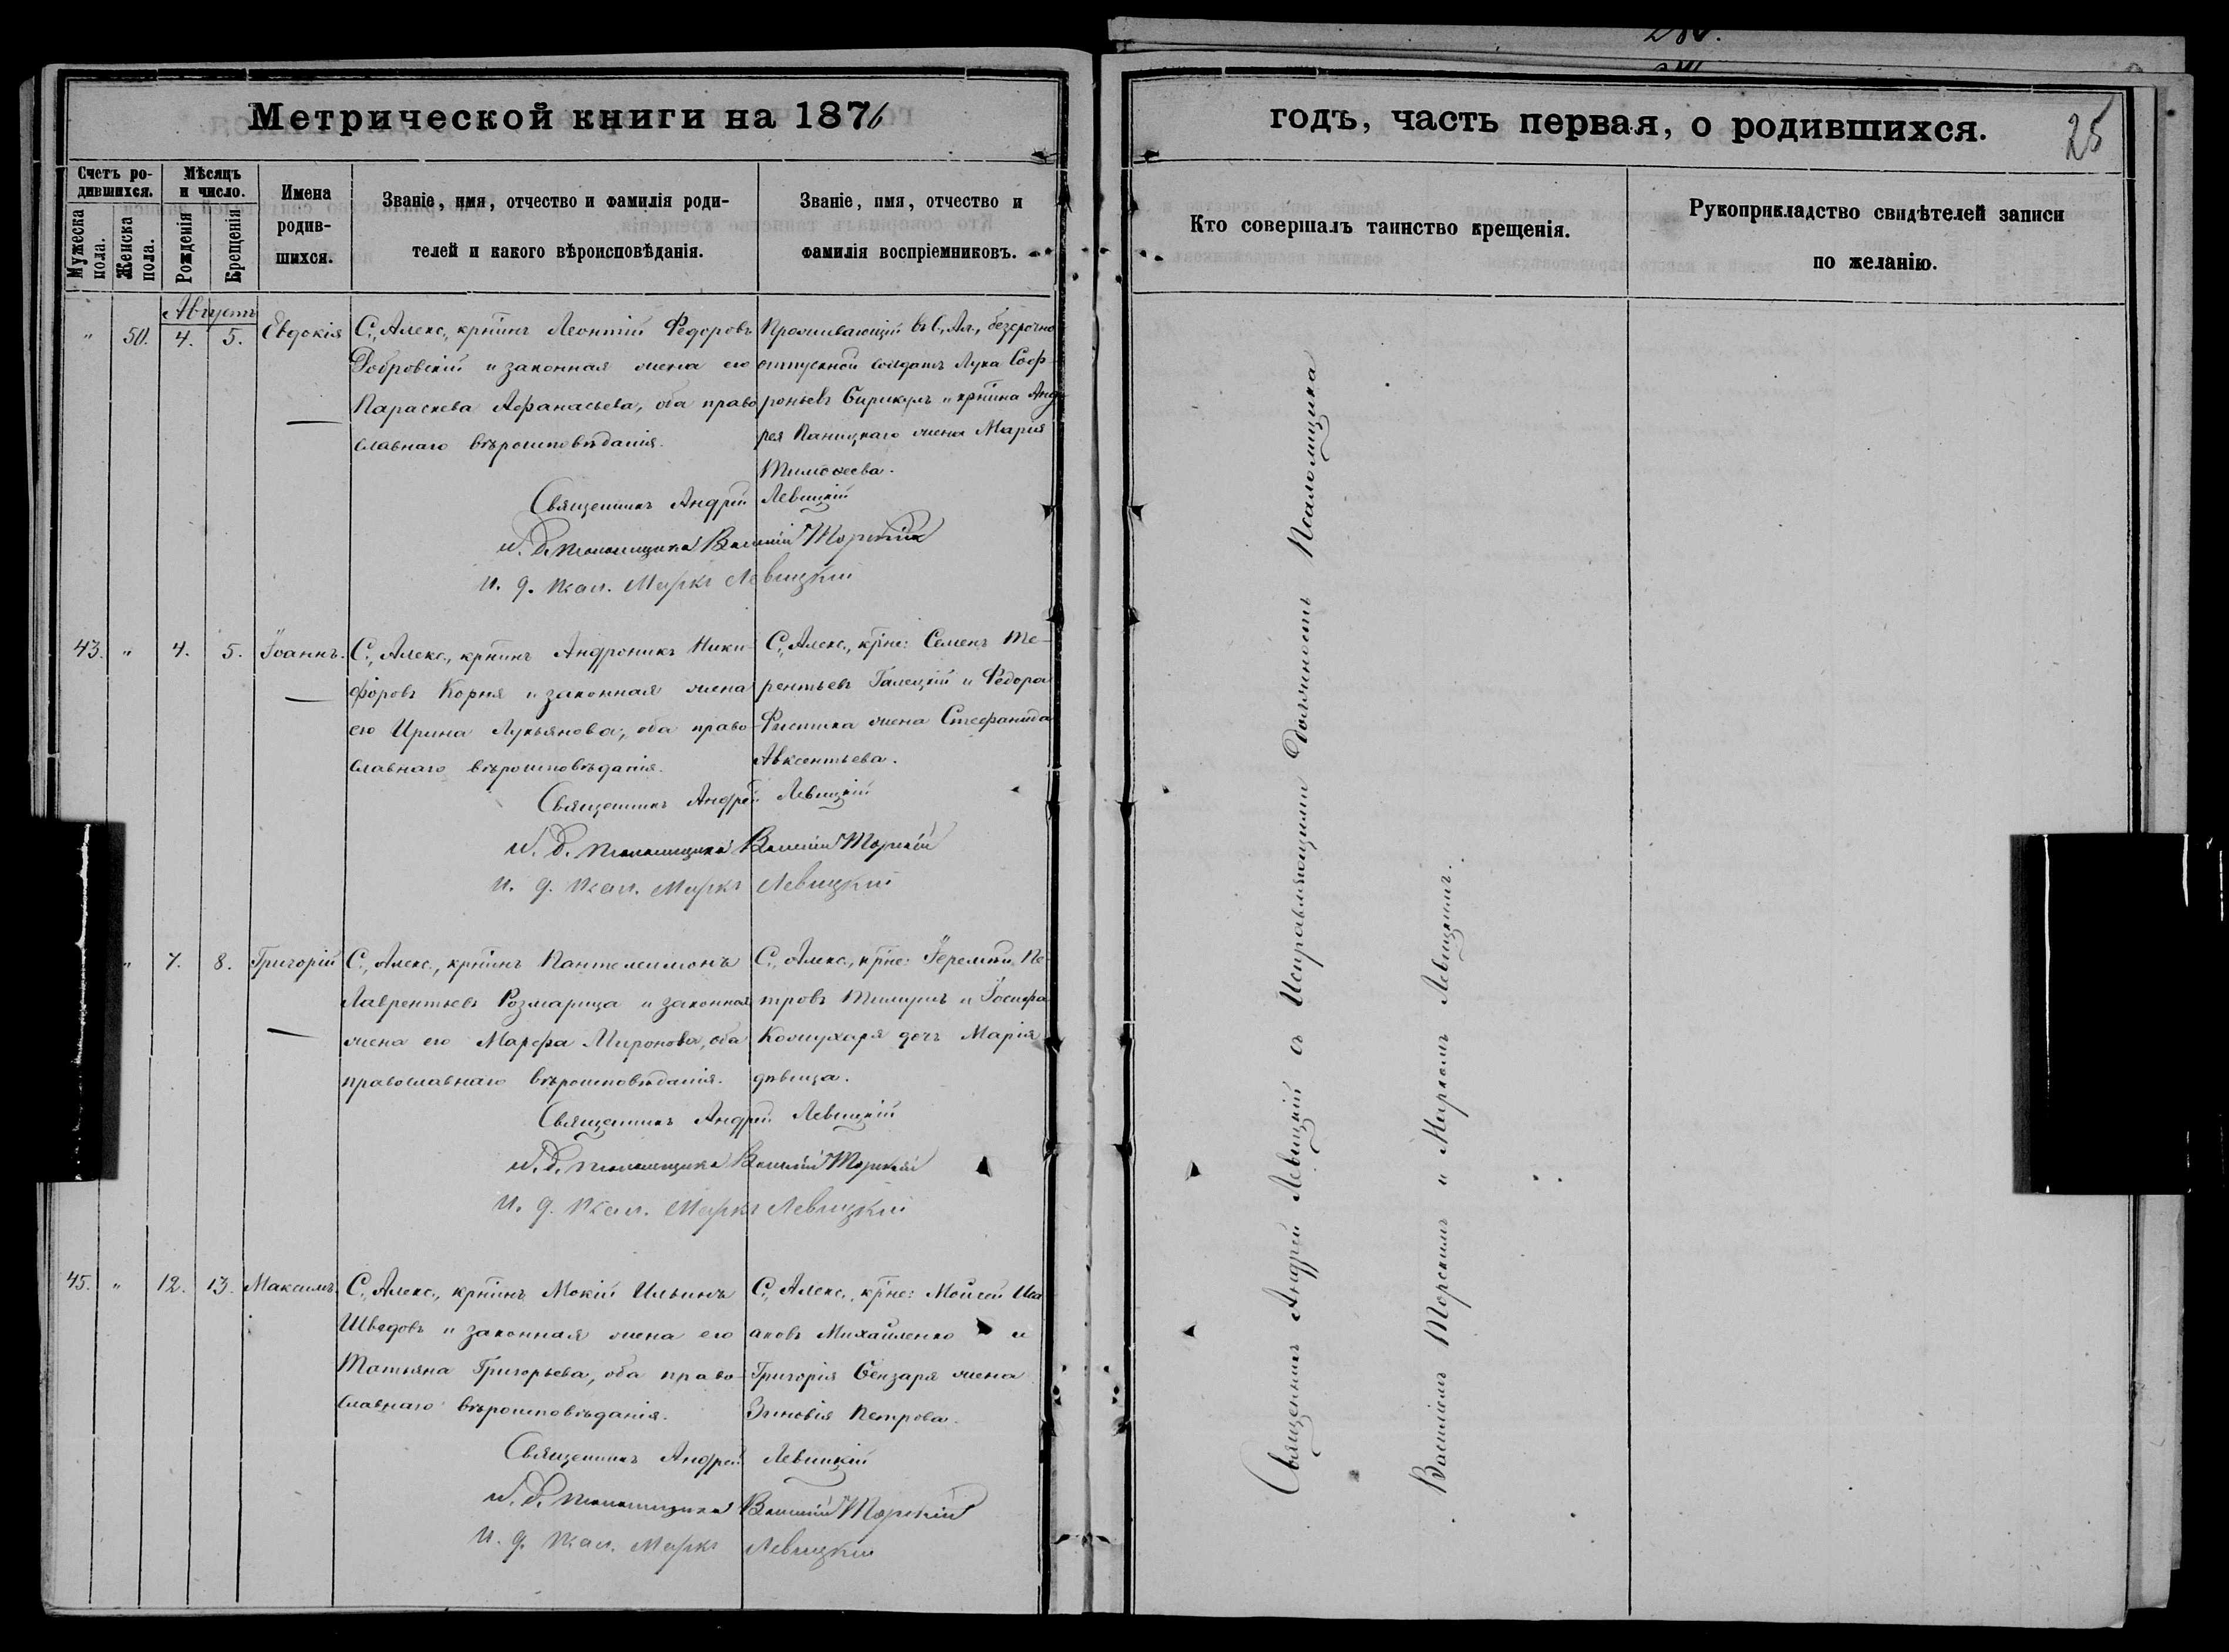 Метрической книги на 1876
Счетъ ро-
дившихся.
Мужеска
пола.
Женска
пола.
Мѣсяцъ
и число.
Рожденія
Крещенія
Имена
родив-
шихся.
Званіе, имя, отчество и фамилія роди-
телей и какого вѣроисповѣданія.
Званіе, имя, отчество и
фамилія воспріемниковъ.
Августъ
" 50. 4. 5. Евдокія
С., Алекс., крнинъ Леонтій Федоровъ
Добровскій и законная жена его
Параскева Афанасьева, оба право
славнаго вѣроисповѣданія.
Проживающій въ С., Ал., безсрочно
отпускной солдатъ Лука Соф
роньевъ и крнина Анд
рея Паницкаго жена Марія
Тимофеева.
Священникъ Андрей Левицкій
И. д. псаломщика Василій Торскій
И. д. псал. Маркъ Левицкій
43. " 4. 5. Іоаннъ.
С., Алекс., крнинъ Андроникъ Ники-
форовъ Корня и законная жена
его Ирина Лукьянова, оба право-
славнаго вѣроисповѣданія.
С., Алекс., крне: Семенъ Те-
рентьевъ Галецкій и Федора
жена Стефанида
Авксентьева.
Священникъ Андрей Левицкій
И. д. псаломщика Василій Торскій
И. д. псал. Маркъ Левицкій
" 7. 8. Григорій
С., Алекс., крнинъ Пантелеимонъ
Лаврентьевъ Розмарица и законная
жена его Марфа Миронова, оба
православнаго вѣроисповѣданія.
С., Алекс., крне: Іеремій Пе-
тровъ и Іосифа
дочь Марія
дѣвица.
Священникъ Андрей Левицкій
И. д. псаломщика Василій Торскій
И. д. псал. Маркъ Левицкій
45. " 12. 13. Максимъ.
С., Алекс., крнинъ Мокій Ильинъ
Шведовъ и законная жена его
Татьяна Григорьева, оба право-
славнаго вѣроисповѣданія.
С., Алекс., крне: Моисей Иса
аковъ Михайленко и
Григорія Бензаря жена
Зиновія Петрова.
Священникъ Андрей Левицкій
И. д. псаломщика Василій Торскій
И. д. псал. Маркъ Левицкій
годъ, часть первая, о родившихся.
25
Кто совершалъ таинство крещенія.
Рукоприкладство свидѣтелей записи
по желанію.
Священникъ Андрей Левицкій съ Исправляющими Должность Псаломщика
Василіемъ Торскимъ и Маркомъ Левицкимъ.